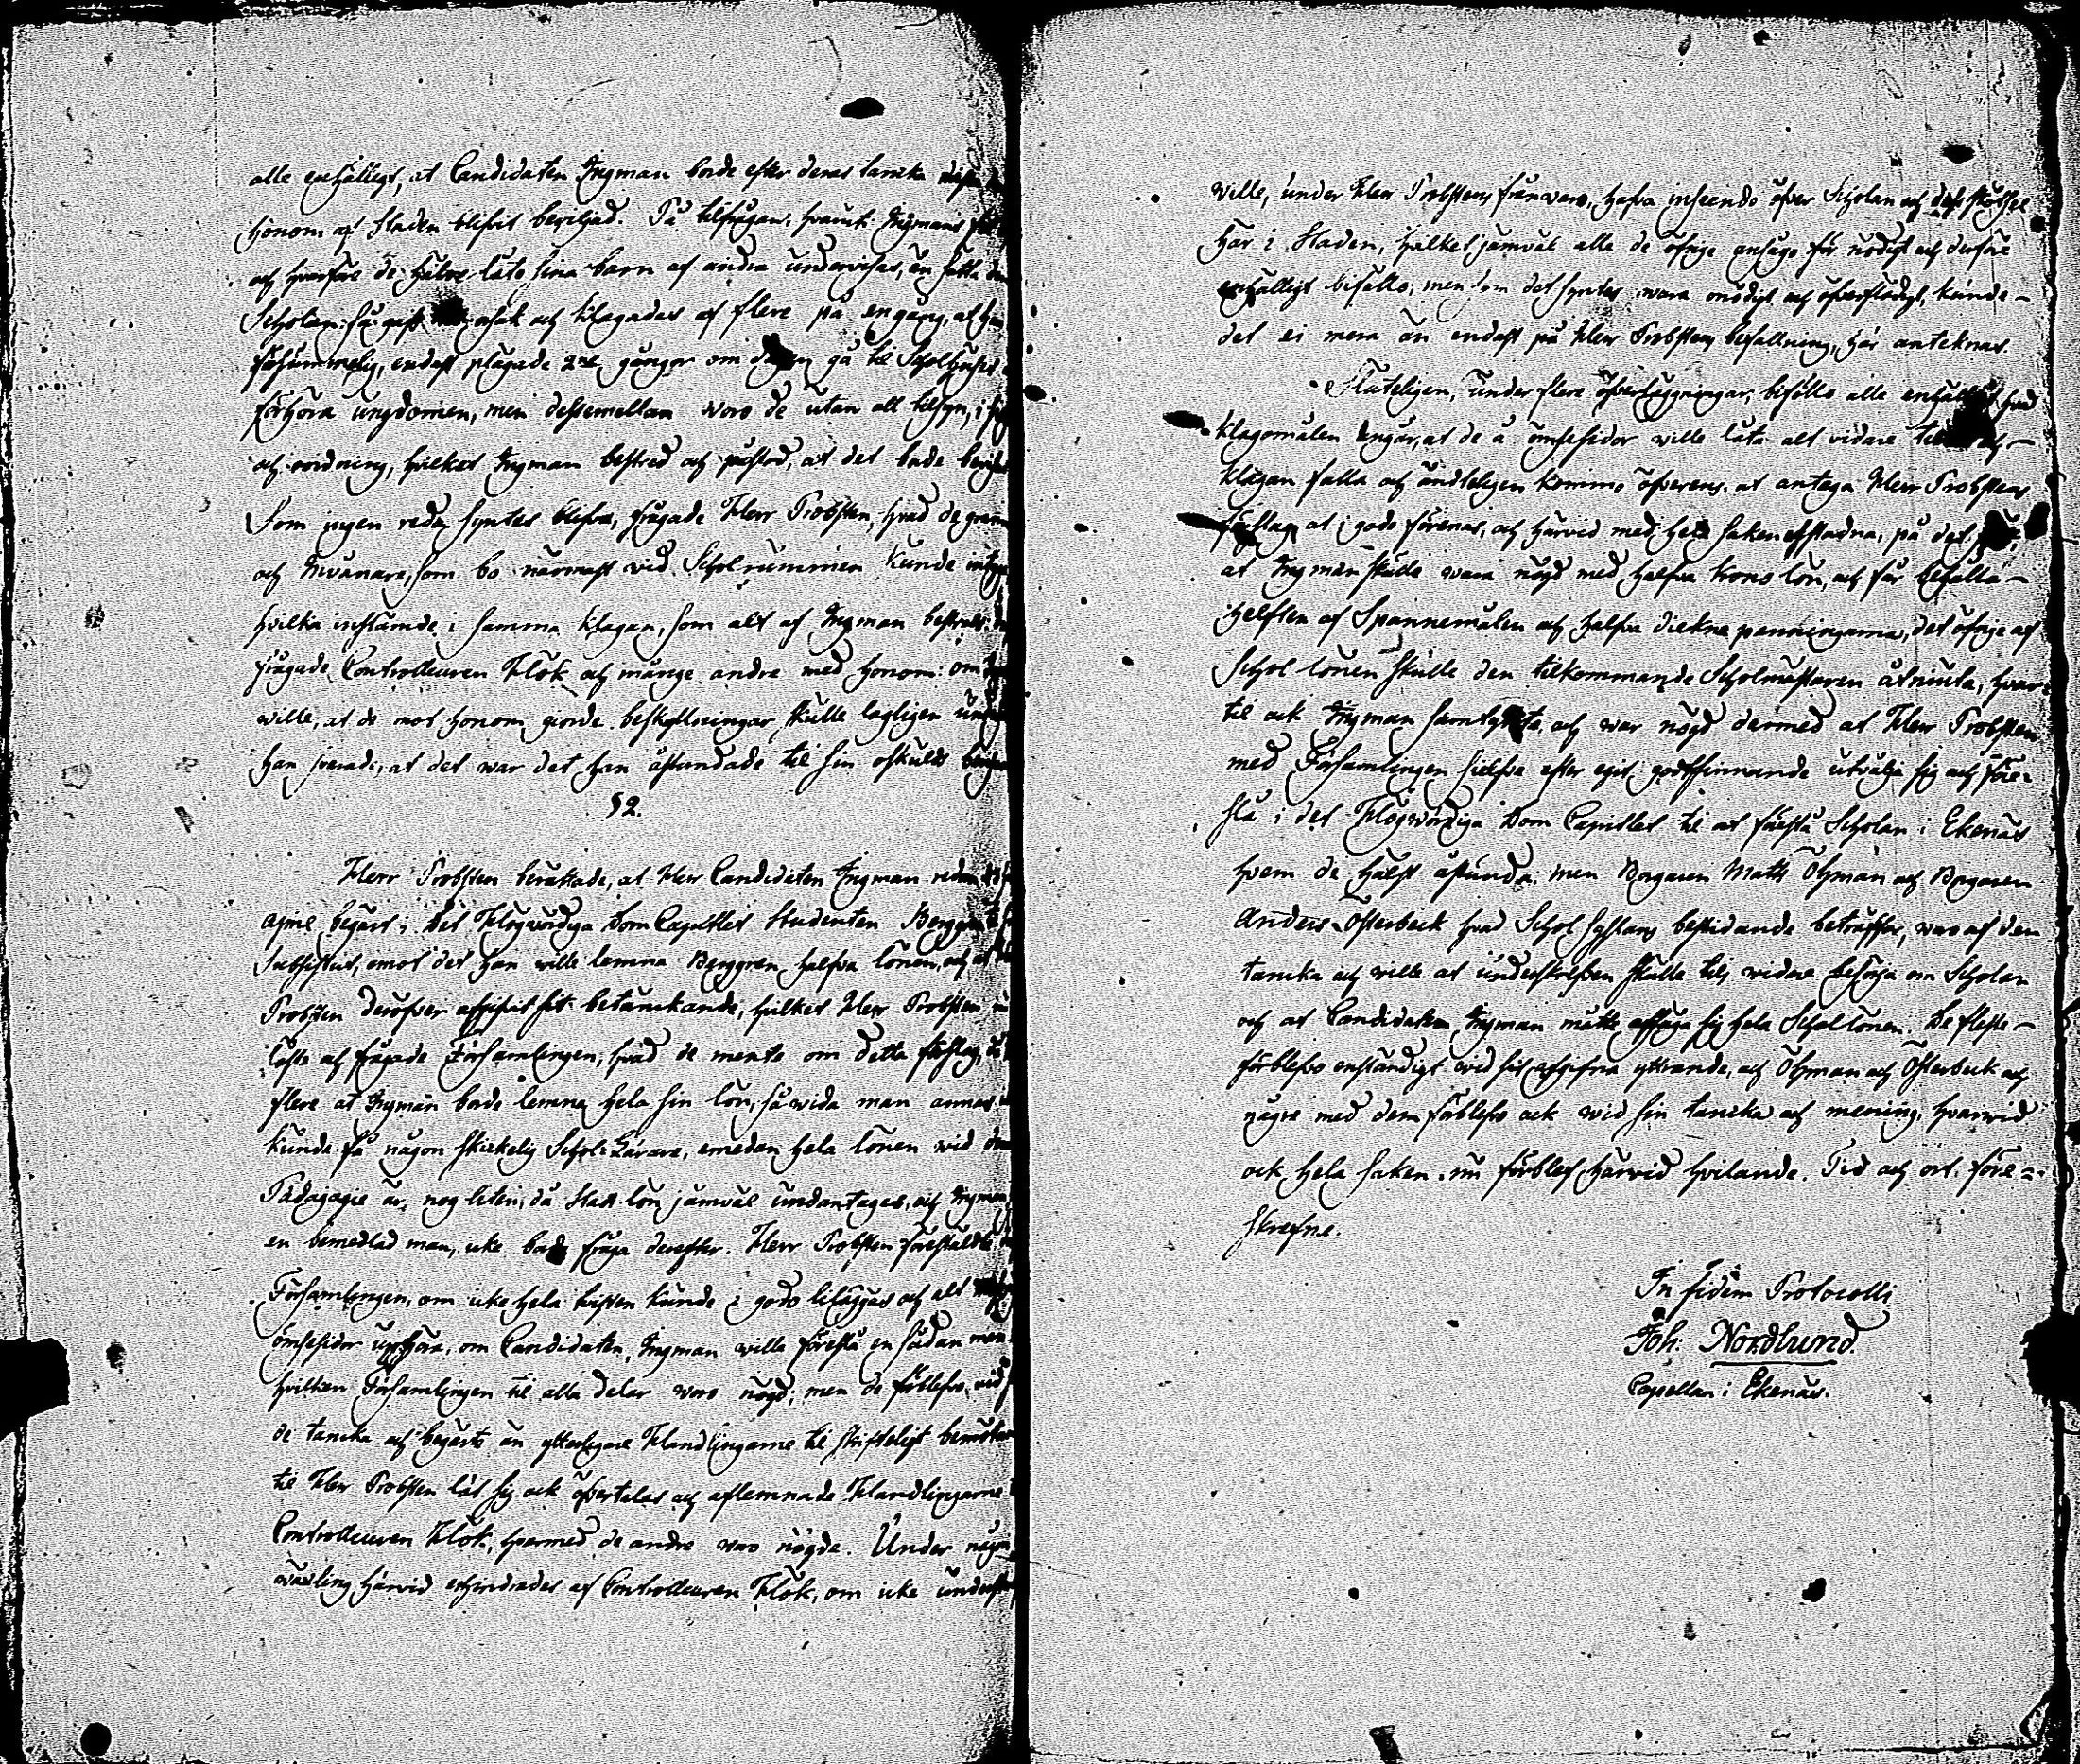 alle enhälligt, at Candidaten Ingman borde efter deras tancka
honom af Staden blifvit beviljad. På tilfrågan, hvaruti Ingmans
och hvarföre de hälre låta sina barn af andra undervisas, än sätta dem
Scholan: så gafs orsak och klagades af flere på en gång, at han
försummelig, endast plägade 2ne gånger om dagen gå til Scholhuset
förhöra ungdomen, men dessemellan woro de utan all tilsyn, i
och ordning, hvilket Ingman bestred och påstod, at det borde
Som ingen reda syntes blefva, frågade Herr Probsten, hvad de
och Invånare, som bo närmast vid Scholrummen kunde
hvilka instämde i samma klagan, som alt af Ingman
frågade Controlleuren Hök och många andra med honom: om
wille, at de mot honom giorde beskyllningar skulle lagligen
han svarade, at det war det han åstundade til sin oskulds
§ 2.
Herr Probsten berättade, at Herr Candidaten Ingman redan
begärt i Det Högvördiga Dom Capitlet Studenten Berggren
Substitut, emot det han wille lemna Berggren halfva lönen, och at
Probsten deröfver afgifvit sit betänckande, hvilket Herr Probsten
läste och frågade Församlingen, hvad de mente om detta förslag, då
flere at Ingman borde lemna hela sin lön, så wida man annars
kunde få någon skickelig Schol-Lärare, emedan hela lönen wid
Pædagogie är nog liten, då Stads lön jämväl undantages, och Ingman
en bemedlad man, icke borde fråga derefter. Herr Probsten förestälde
Församlingen, om icke hela tvisten kunde i godo biläggas och alt
ömsesidor uphöra, om Candidaten Ingman wille förestå en sådan man
hvilken Församlingen til alla delar woro nögd; men de förblefvo vid
de tancka och begärte än ytterligare Handlingarne til skrifteligt bemötande
til Herr Probsten lät sig ock öfvertalas och aflemnade Handlingarne
Controlleuren Hök, hvarmed de andre woro nögde. Under någon
wäxling härvid erhindrades af Controlleuren Hök, om icke
wille, under Herr Probstens frånvaro, hafva inseende öfver Scholan och dess skötsel
här i Staden, hvilket jämväl alle de öfrige ansågo för nödigt och derföre
enhälligt biföllo; men som det syntes wara onödigt och öfverflödigt, kunde
det ei mera än endast på Herr Probstens befallning, här anteknas.
Sluteligen, under flere öfverläggningar, biföllo alle enhälligt hvad
klagomålen angår, at de å ömsesidor wille låta alt vidare
klagan falla och ändteligen kommo öfverens at antaga Herr Probstens
förslag at i godo förenas, och härvid med hela saken afstadna, på det
at Ingman skulle wara nögd med halfva krono lön, och får behålla
helften af Spannemålen och halfva diekne penningarna, det öfrige af
Schol lönen skulle den tilkommande Scholmästaren åtniuta, hvar-
til ock Ingman samtykte och war nögd dermed at Herr Probsten
med Församlingen sielfva efter egit godtfinnande utvälja sig och före-
slå i det Högwördiga Dom Capitlet til at förestå Scholan i Ekenäs
hvem de hälst åstunda: men Borgaren Matts Öhman och Borgaren
Anders Österbeck hvad Schol sysslans bestridande beträffar, woro af den
tancka och wille at
och at Candidaten Ingman måtte afsäja sig hela Schol lönen. De fleste
förblefvo enständigt wid sit afgifna yttrande, och Öhman och Österbeck och
några med dem förblefvo ock wid sin tancka och mening, hvarwid
ock hela saken nu förblef härvid hvilande. Tid och ort före-
skrefne.
In fidem Protocolli
Joh: Nordlund.
Capellan i Ekenäs.